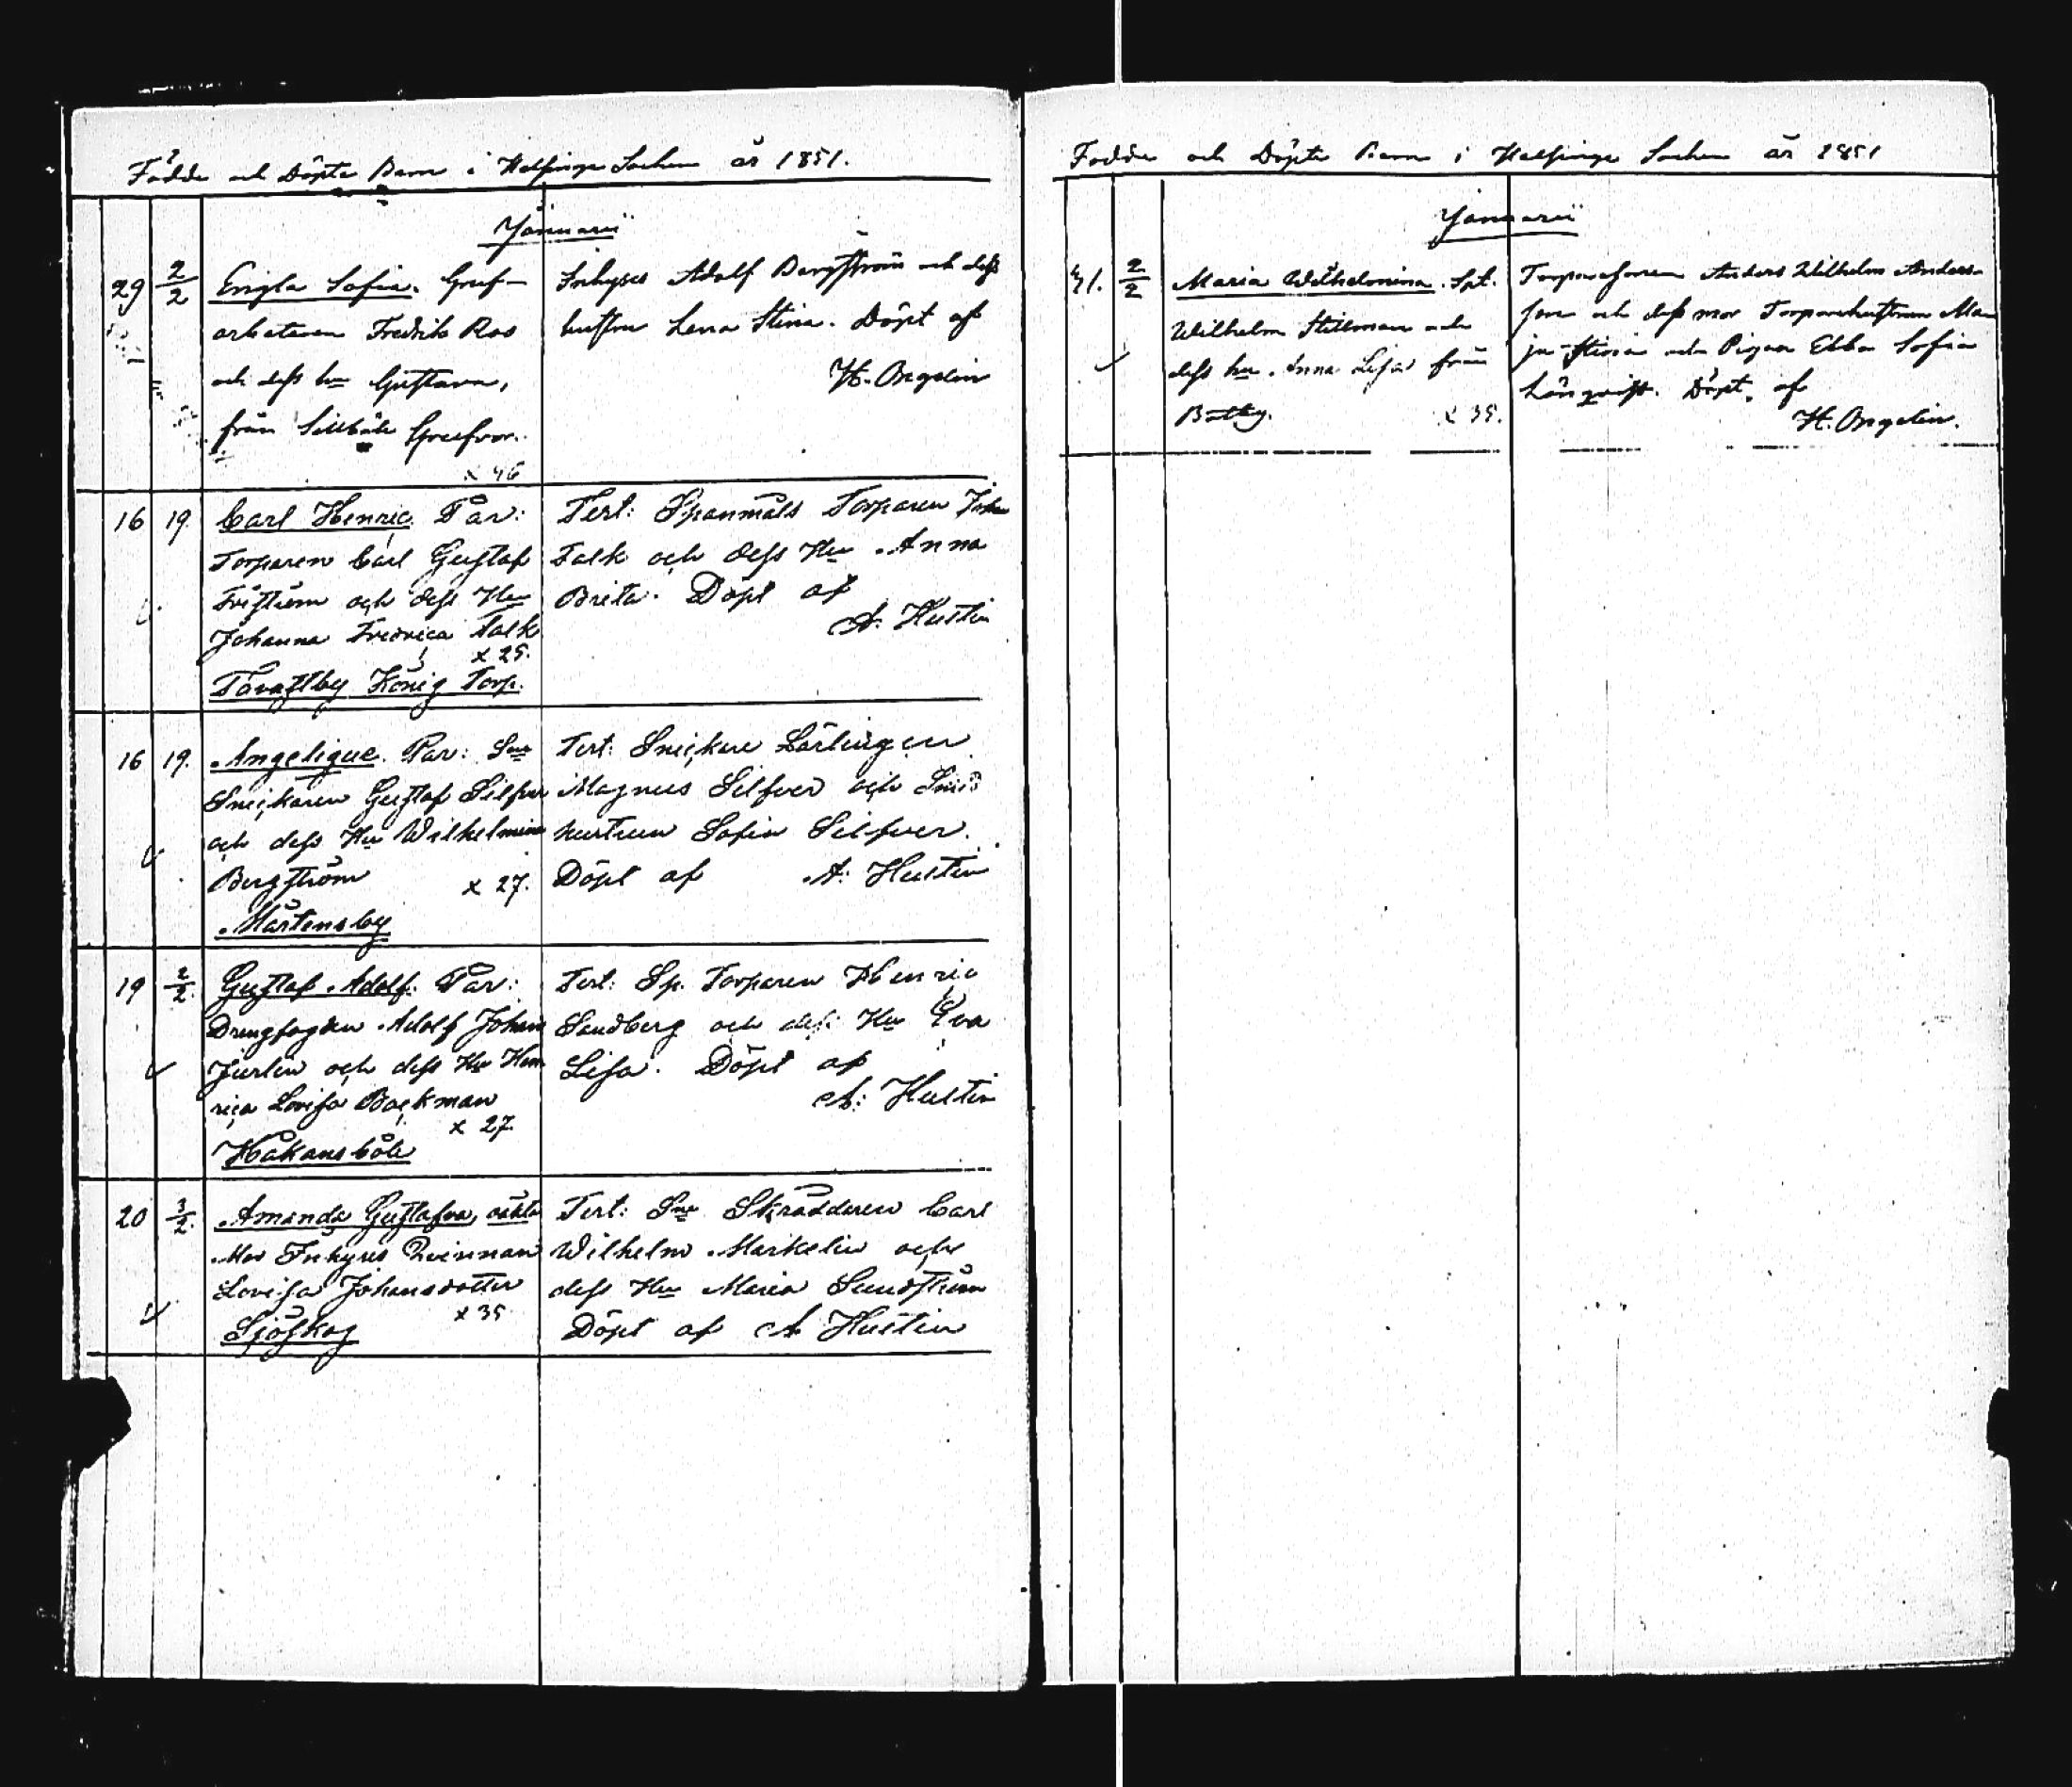 Födde och Döpte Barn i Helsinge Sochen år 1851.
Januarii
29 2/2 Engla Sofia. Gruf-
arbetaren Fredrik Ros
och dess hu Gustava,
från Sillböle Grufvor.
x 46
Inhyses Adolf Bergström och dess
hustru Lena Stina. Döpt af
H. Orgelin
16 19. Carl Henric Par:
Torparen Carl Gustaf
Friström och dess Hu
Johanna Fredrica Falk
x 25.
Tavastby König Torp.
Test: Spanmåls Torparen Johan
Falk och dess Hu Anna
Brita. Döpt af
A: Hustin
16 19. Angelique. Par: Sne
Snickaren Gustaf Silfver
och dess Hu Wilhelmina
Bergström x 27.
Mårtensby
Test: Snickare Lärlingen
Magnus Silfver och
hustrun Sofia Silfver.
Döpt af A: Hustin
19 2/2. Gustaf Adolf. Par:
Drengfogden Adolf Johan
Jurlin och dess Hu Hen
rica Lovisa Backman
x 27.
Håkansböle
Test: Sp. Torparen Henric
Sandberg och dess Hu Eva
Lisa. Döpt af
A: Hustin
20 2/2. Amanda Gustafva, oäkta
Mor Inhyses Qvinnan
Lovisa Johansdotter
x 35
Sjöskog
Test: Sne Skräddaren Carl
Wilhelm Markelin och
dess Hu Maria Sundström
Döpt af A Hustin
Födde och Döpte Barn i Helsinge Sochen år 1851
Januarii
31. 2/2 Maria Wilhelmina. Spt.
Wilhelm Stillman och
dess hu. Anna Lisa från
Botby. x 35.
Torparesonen Anders Wilhelm Anders-
son och dess mor Torparehustrun Ma
ja Stina och Pigan Ebba Sofia
Lönqvist. Döpt af
H. Orgelin.